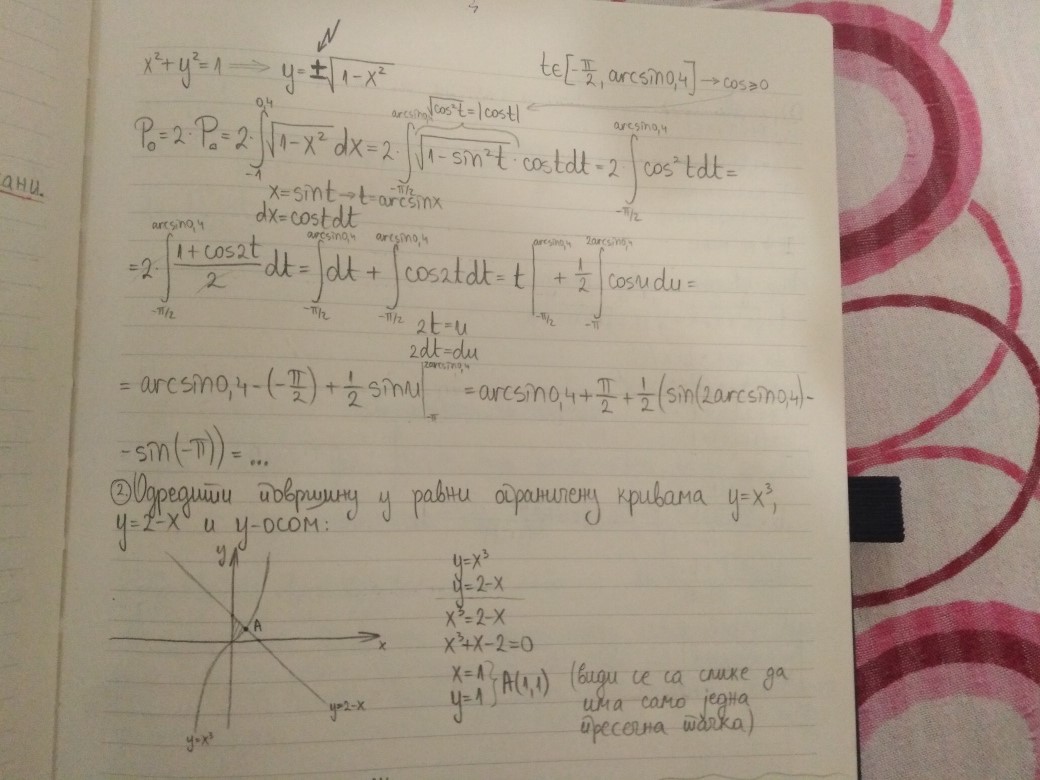 ани.
x²+y²=1 ⟹ y=±√(1-x²)
t∈[-π/2, arcsin0,4] → cos≥0
P₀=2·Pₐ=2·∫_{-1}^{0,4} √(1-x²) dx = 2·∫_{-π/2}^{arcsin0,4} √(1-sin²t)·costdt = 2 ∫_{-π/2}^{arcsin0,4} cos²tdt =
√cos²t=|cost|
x=sint→t=arcsinx
dx=costdt
=2·∫_{-π/2}^{arcsin0,4} (1+cos2t)/2 dt = ∫_{-π/2}^{arcsin0,4} dt + ∫_{-π/2}^{arcsin0,4} cos2tdt = t|_{-π/2}^{arcsin0,4} + 1/2 ∫_{-π}^{2arcsin0,4} cosudu =
2t=u
2dt=du
= arcsin0,4-(-π/2)+1/2 sinu|_{-π}^{2arcsin0,4} = arcsin0,4+π/2+1/2(sin(2arcsin0,4)-
-sin(-π))=...
② Одредити површину у равни ограничену кривама y=x³,
y=2-x и y-осом:
y
A
x
y=2-x
y=x³
y=x³
y=2-x
x³=2-x
x³+x-2=0
x=1
y=1 } A(1,1)
(види се са слике да
има само једна
пресечна тачка)